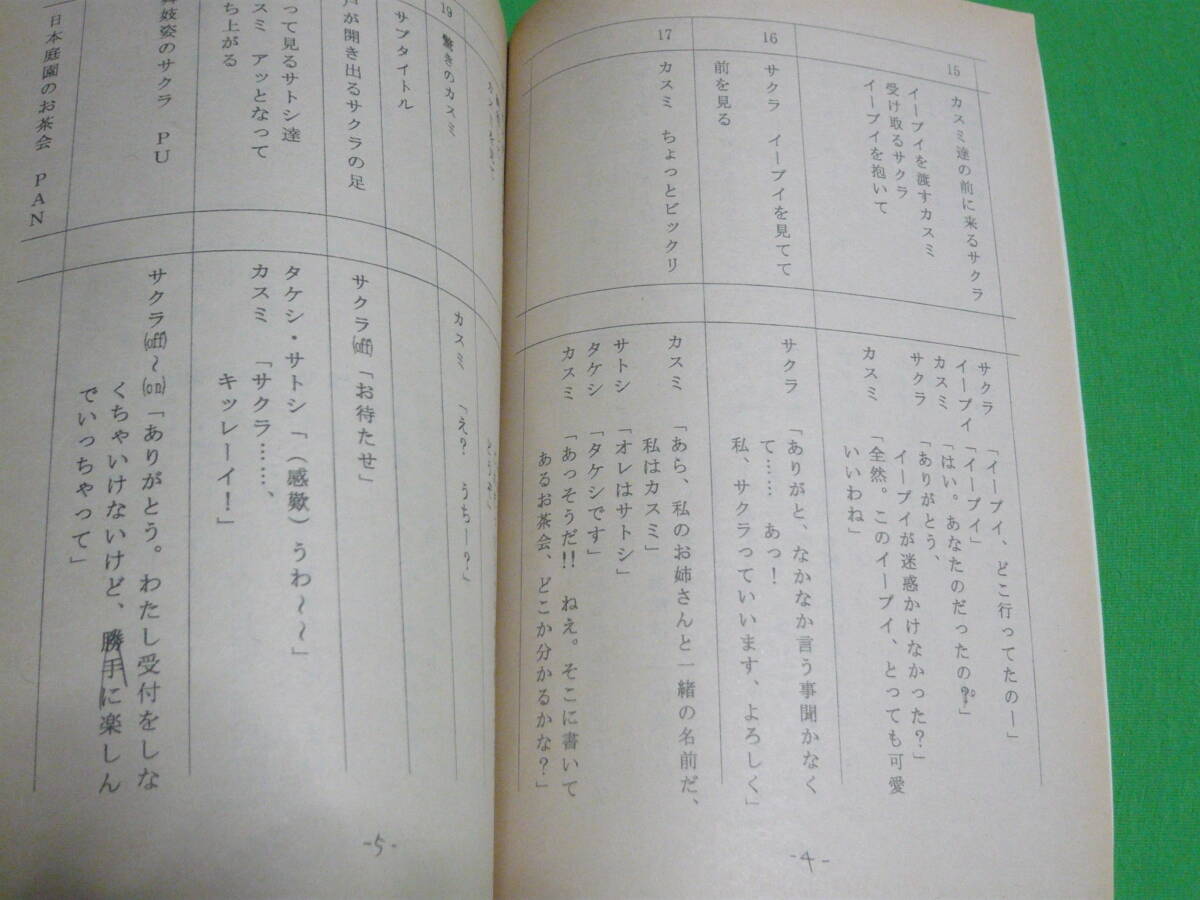 15
カスミ達の前に来るサクラ
イーブイを渡すカスミ
受け取るサクラ
イーブイを抱いて
サクラ 「イーブイ、どこ行ってたのー」
イーブイ 「イーブイ」
カスミ 「はい。あなたのだったの?」
サクラ 「ありがとう、
イーブイが迷惑かけなかった?」
カスミ 「全然。このイーブイ、とっても可愛
いいわね」
16
サクラ イーブイを見てて
前を見る
サクラ 「ありがと、なかなか言う事聞かなく
て…… あっ!
私、サクラっていいます、よろしく」
17
カスミ ちょっとビックリ
カスミ 「あら、私のお姉さんと一緒の名前だ、
私はカスミ」
サトシ 「オレはサトシ」
タケシ 「タケシです」
カスミ 「あっそうだ!! ねえ。そこに書いて
あるお茶会、どこか分かるかな?」
-4-
19
驚きのカスミ
カスミ 「え? うちー?」
サブタイトル
戸が開き出るサクラの足
サクラ(off)「お待たせ」
って見るサトシ達
スミ アッとなって
ち上がる
タケシ・サトシ「(感歎)うわ～～」
カスミ 「サクラ……、
キッレーイ!」
妓姿のサクラ PU
サクラ(off)～(on)「ありがとう。わたし受付をしな
くちゃいけないけど、勝手に楽しん
でいっちゃって」
日本庭園のお茶会 PAN
-5-